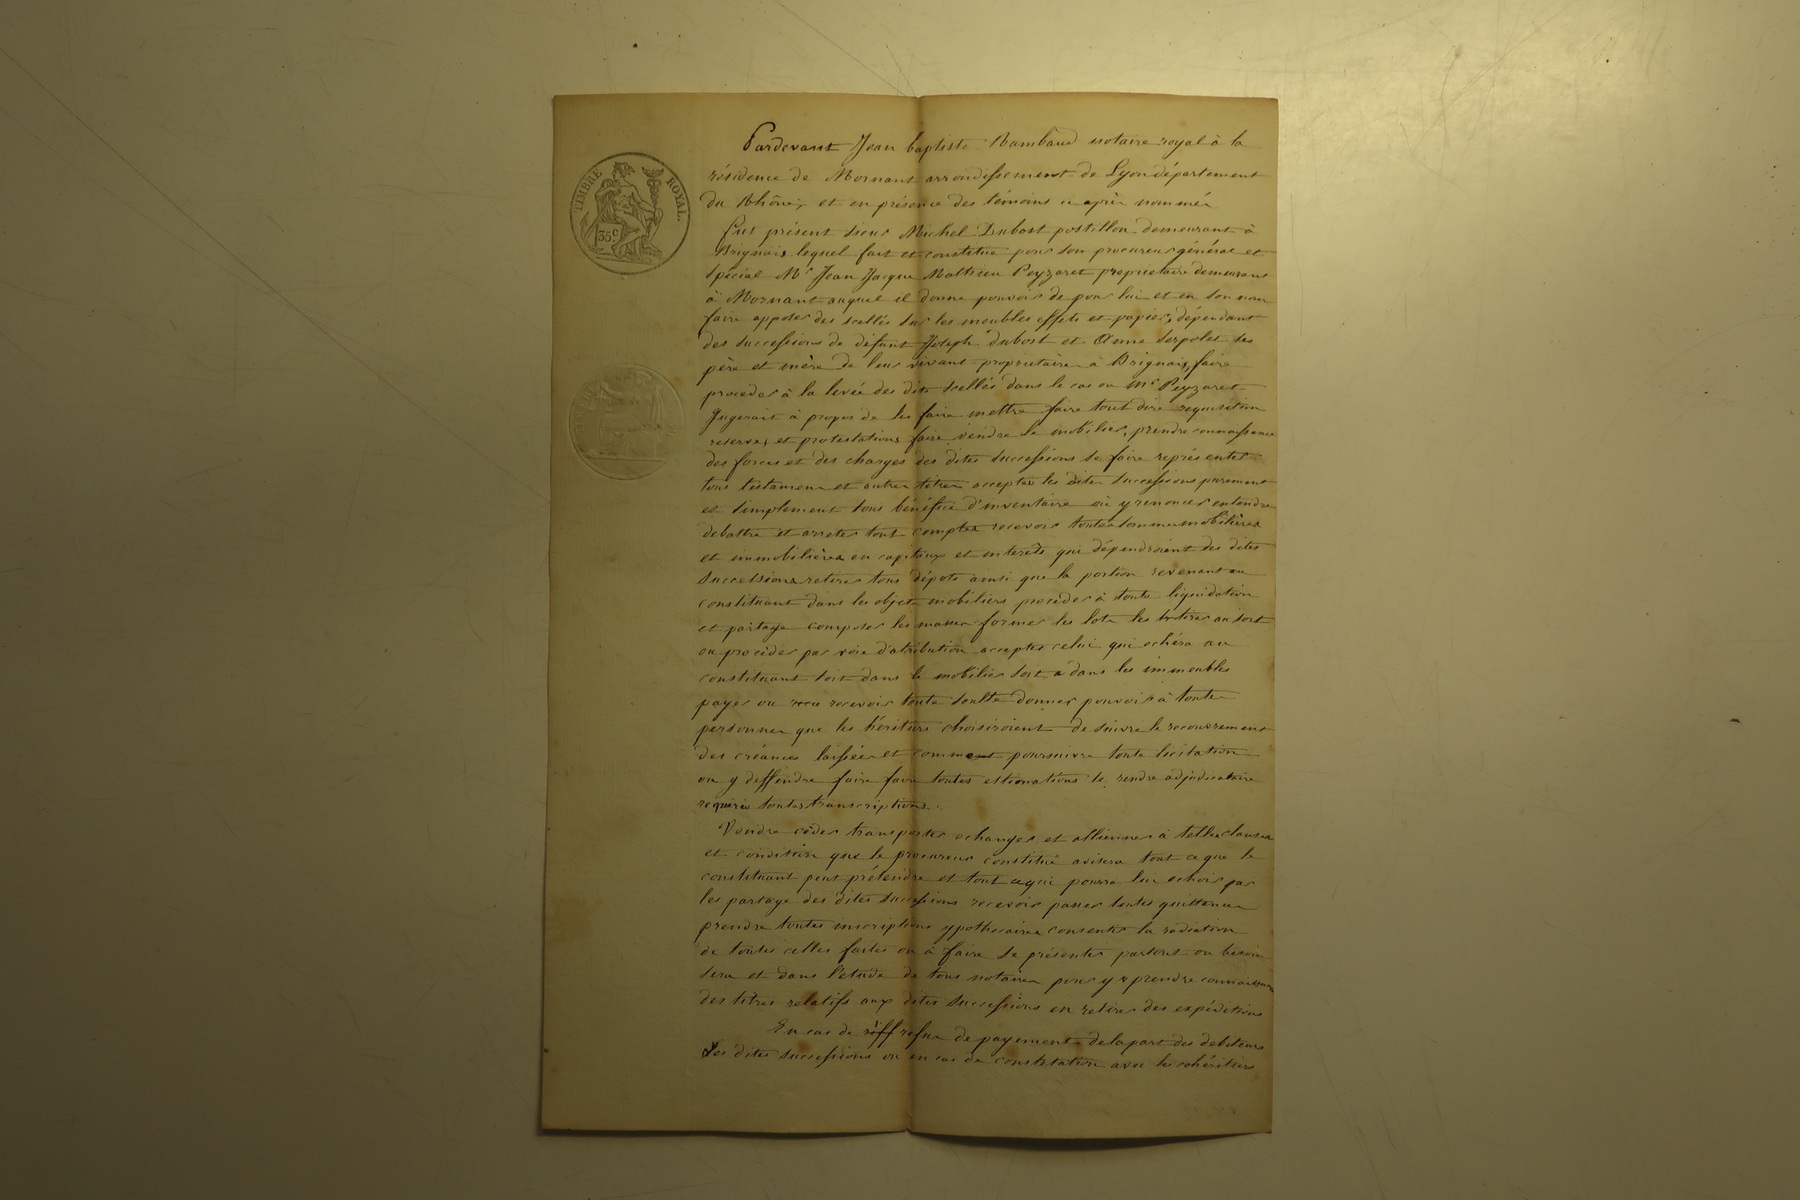 TIMBRE ROYAL.
35c
Pardevant Jean baptiste Rambaud notaire royal à la
résidence de Mornant arrondissement de Lyon département
du Rhône, et en présence des témoins ci après nommés
Fut présent sieur Michel Dubost postillon demeurant à
Brignais lequel fait et constitue pour son procureur général et
spécial Mr Jean Jacque Mathieu Peyzaret proprietaire demeurant
à Mornant auquel il donne pouvoir de pour lui et en son nom
faire apposer des scellés sur les meubles effets et papiers, dépendant
des successions de défunt Joseph dubost et Anne despoles ses
père et mère de leur vivant proprietaire à Brignais, faire
proceder à la levée des dits scellés dans le cas ou Mr Peyzaret
Jugerait à propos de les faire mettre faire tout dire requisition
reserves et protestations faire vendre le mobilier, prendre connaissance
des forces et des charges des dites successions se faire représenter
tous testamens et autres titres accepter les dites successions purement
et simplement sous bénéfice d'inventaire ou y renoncer entendre
debattre et arreter tout comptes recevoir toutes sommes mobilières
et immobilières en capitaux et interets qui dépendroient des dites
successions retirer tous dépots ainsi que la portion revenant au
constituant dans les objets mobiliers proceder à toute liquidation
et partage composer les masses former les lots les tirer au sort
ou proceder par voie d'atribution accepter celui qui echéra au
constituant soit dans le mobilier soit dans les immeubles
payer ou recevoir toute soulte donner pouvoir à toute
personnes que les héritiers choisiroient de suivre le recouvrement
des créances laissées et comment poursuivre toute licitation
ou y deffendre faire faire toutes estimations se rendre adjudicataire
requérir toutes transcriptions.
Vendre céder transporter echanger et alliener à telles clauses
et condition que le procureur constitué avisera tout ce que le
constituant peut prétendre et tout ce qui pourra lui echoir par
les partage des dites successions recevoir passer toutes quittances
prendre toutes inscriptions ypothecaires consentir la radiation
de toutes celles faites ou à faire se présenter partout ou besoin
sera et dans l'etude de tous notaires pour y prendre connaissance
des titres relatifs aux dites successions en retirer des expéditions
En cas de refus de payement de la part des debiteurs
des dites successions ou en cas de contestation avec les cohéritiers